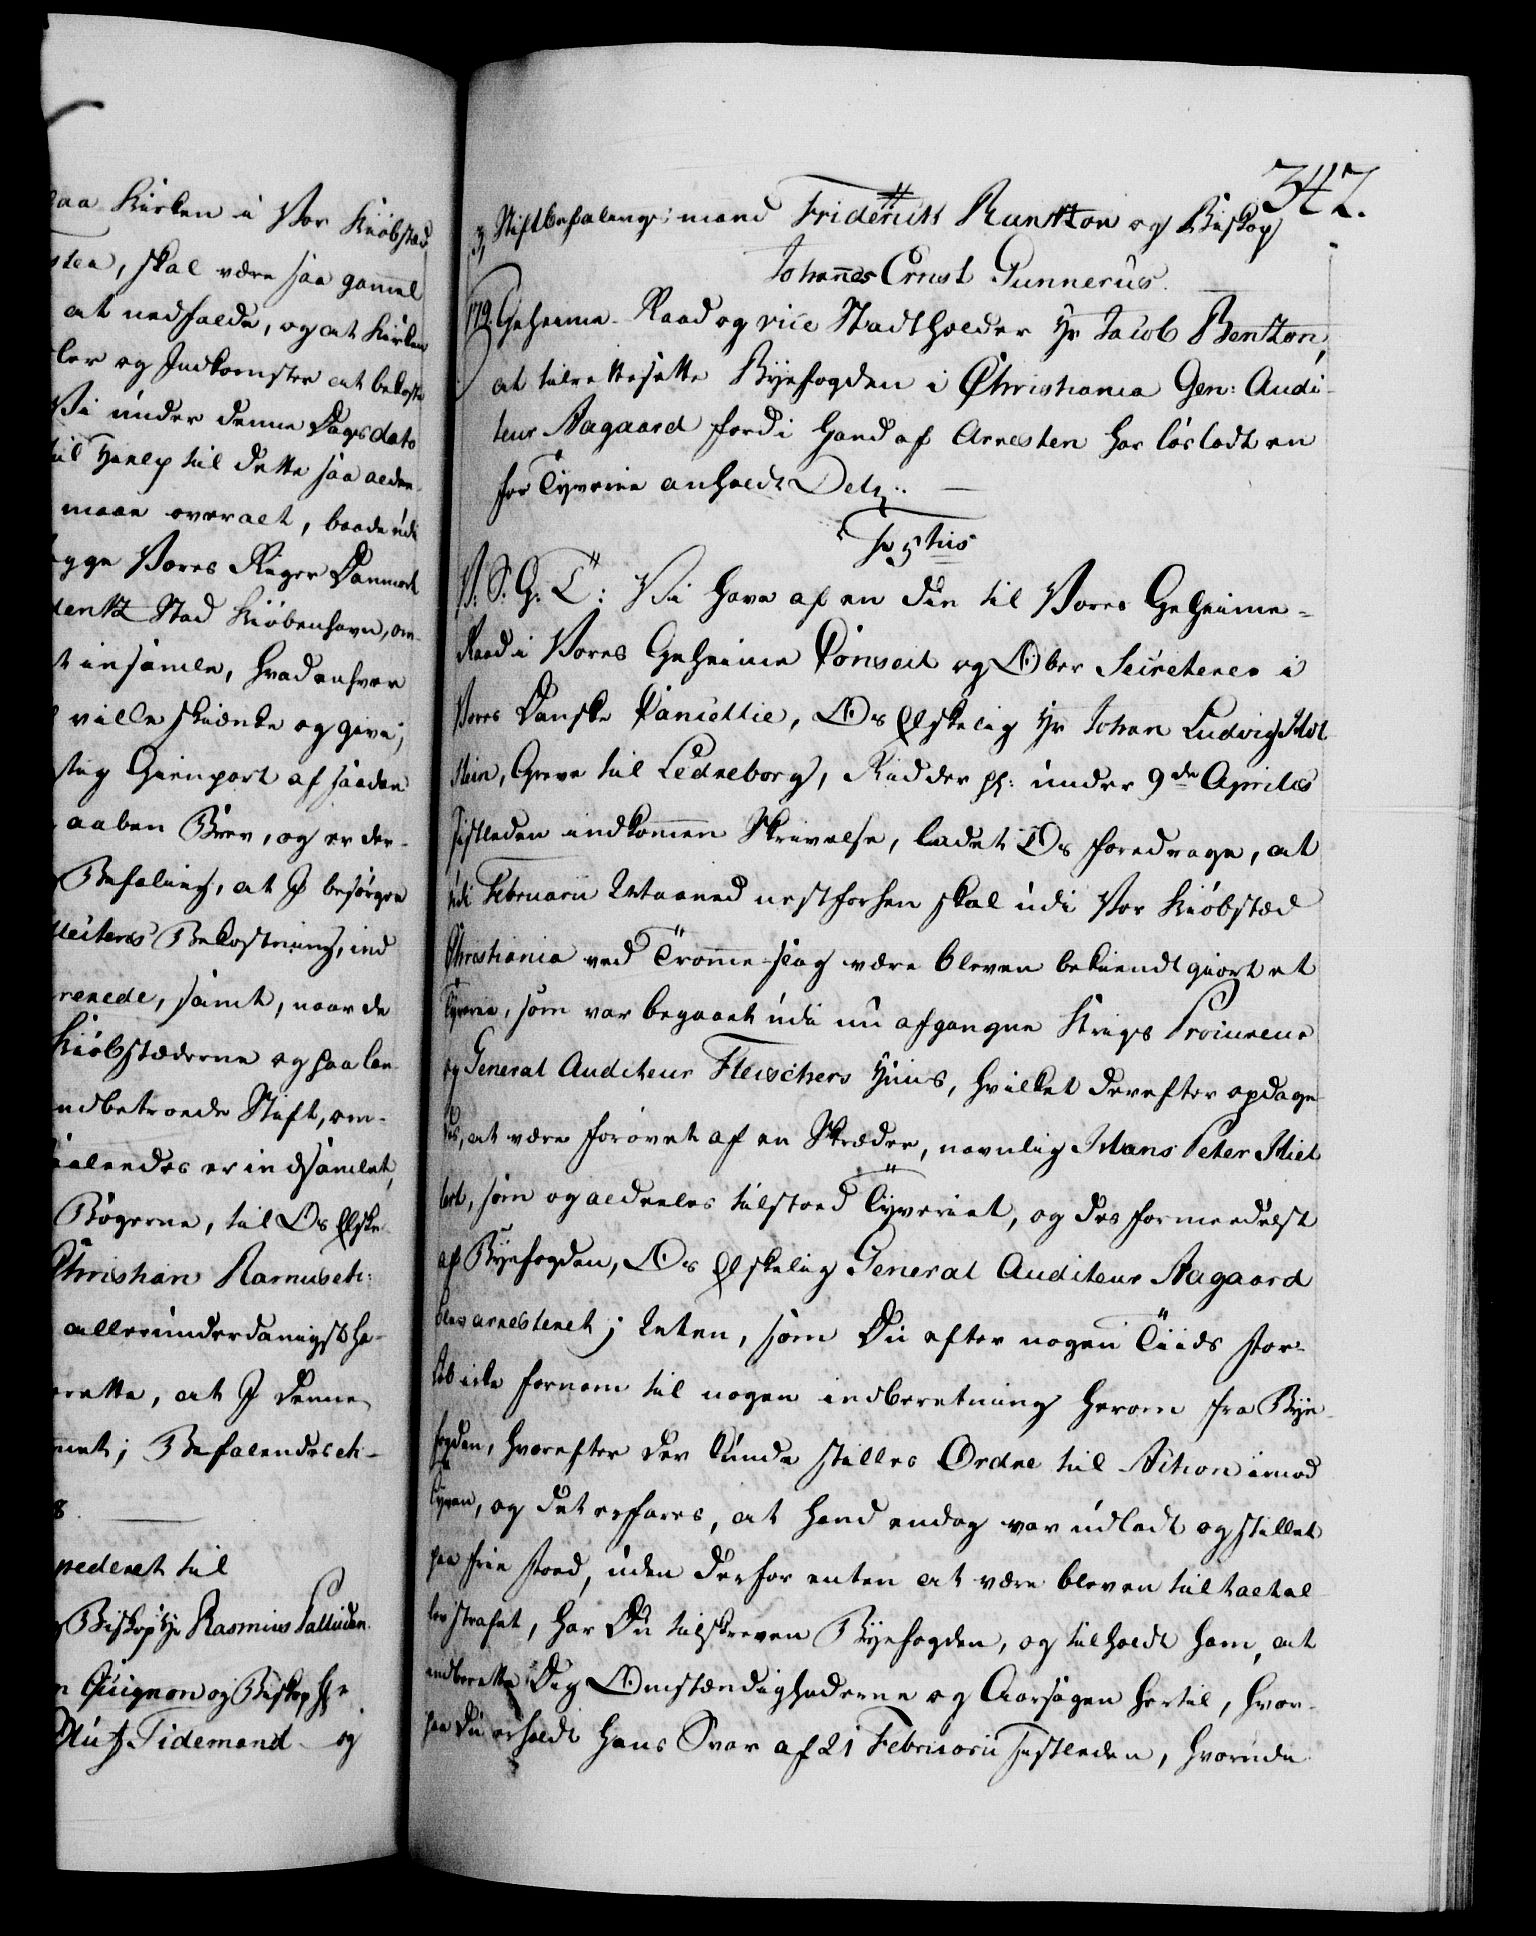 paa Kirken i Vor Kiöbstæd
sten, skal være saa gammel
at nedfalde, og at Kirken
ler og Indkomster at bekoste
Vi under denne Dags dato
til Hielp til dette saa alde-
maae overalt, baade udi
ygge Vores Riger Danmark
dentz Stad Kiöbenhavn, om-
t indsamle, hvad enhver
ville skienke og give;
stig Gienpart af saadan
aaben Brev, og er der-
Befaling, at I besörger
Bekostning, ind
rerede, samt, naar de
Kiöbstæderne og paa lan-
ndbetroede Stift, om-
aalendes er indsamlet,
Bögerne, til Os Elske-
Christian Ramus etc:
allerunderdanigst ha-
rette, at I denne
met; Befalendes etc-
8.
pederet til
Biskop Hr Rasmus Paludan.
n Guignon og Biskop Hr
Tidemand og
342.
3, Stiftbefalingsmand Friderich Rantzon og Biskop
Johannes Ernst Gunnerus.
179 Geheime-Raad og vice Stadtholder Hr Jacob Bentzon,
at tilrettesætte Byefogden i Christiania Gen: Audi-
teur Aagaard fordi hand af Arresten har lösladt en
for Tyverie anholdt Delq:. —
Festus
V: S. G. T: Vi have af en din til Vores Geheime-
Raad i Vores Geheime Conseil og Ober Secreterer i
Vores Danske Cancellie, Os Elskelig Hr Johan Ludvig Hol-
stein, Greve til Ledreborg, Ridder pp: under 9de Aprilis
sistleden indkommen Skrivelse, ladet Os foredrage, at
udi Februarii Maaned nestforhen skal udi Vor Kiöbstæd
Christiania ved Tromme-slag være bleven bekiendtgiort et
Tyverie, som var begaaet udi nu afgangne Krigs Procureur
og General Auditeur Fleischers Huus, hvilket derefter opdage-
des, at være forövet af en Skræder, navnlig Hans Peter Miel
lert, som og aldeeles tilstoed Tyveriet, og des formeedelst
af Byefogden, Os Elskelig General Auditeur Aagaard
blev arresteret; Men, som Du efter nogen Tiids for-
löb icke fornam til nogen indberetning herom fra Bye-
fogden, hvorefter der kunde stilles Ordre til Action imod
Tyven, og det erfares, at hand endog var udladt og stillet
paa frie Foed, uden derfor enten at være bleven tiltalt el-
ler straffet, har Du tilskreven Byefogden, og tilholdt ham, at
indberette Dig Omstændighederne og Aarsagen hertil, hvor-
paa Du erholdt hans Svar af 21 Februarii sistleden, hvorudi